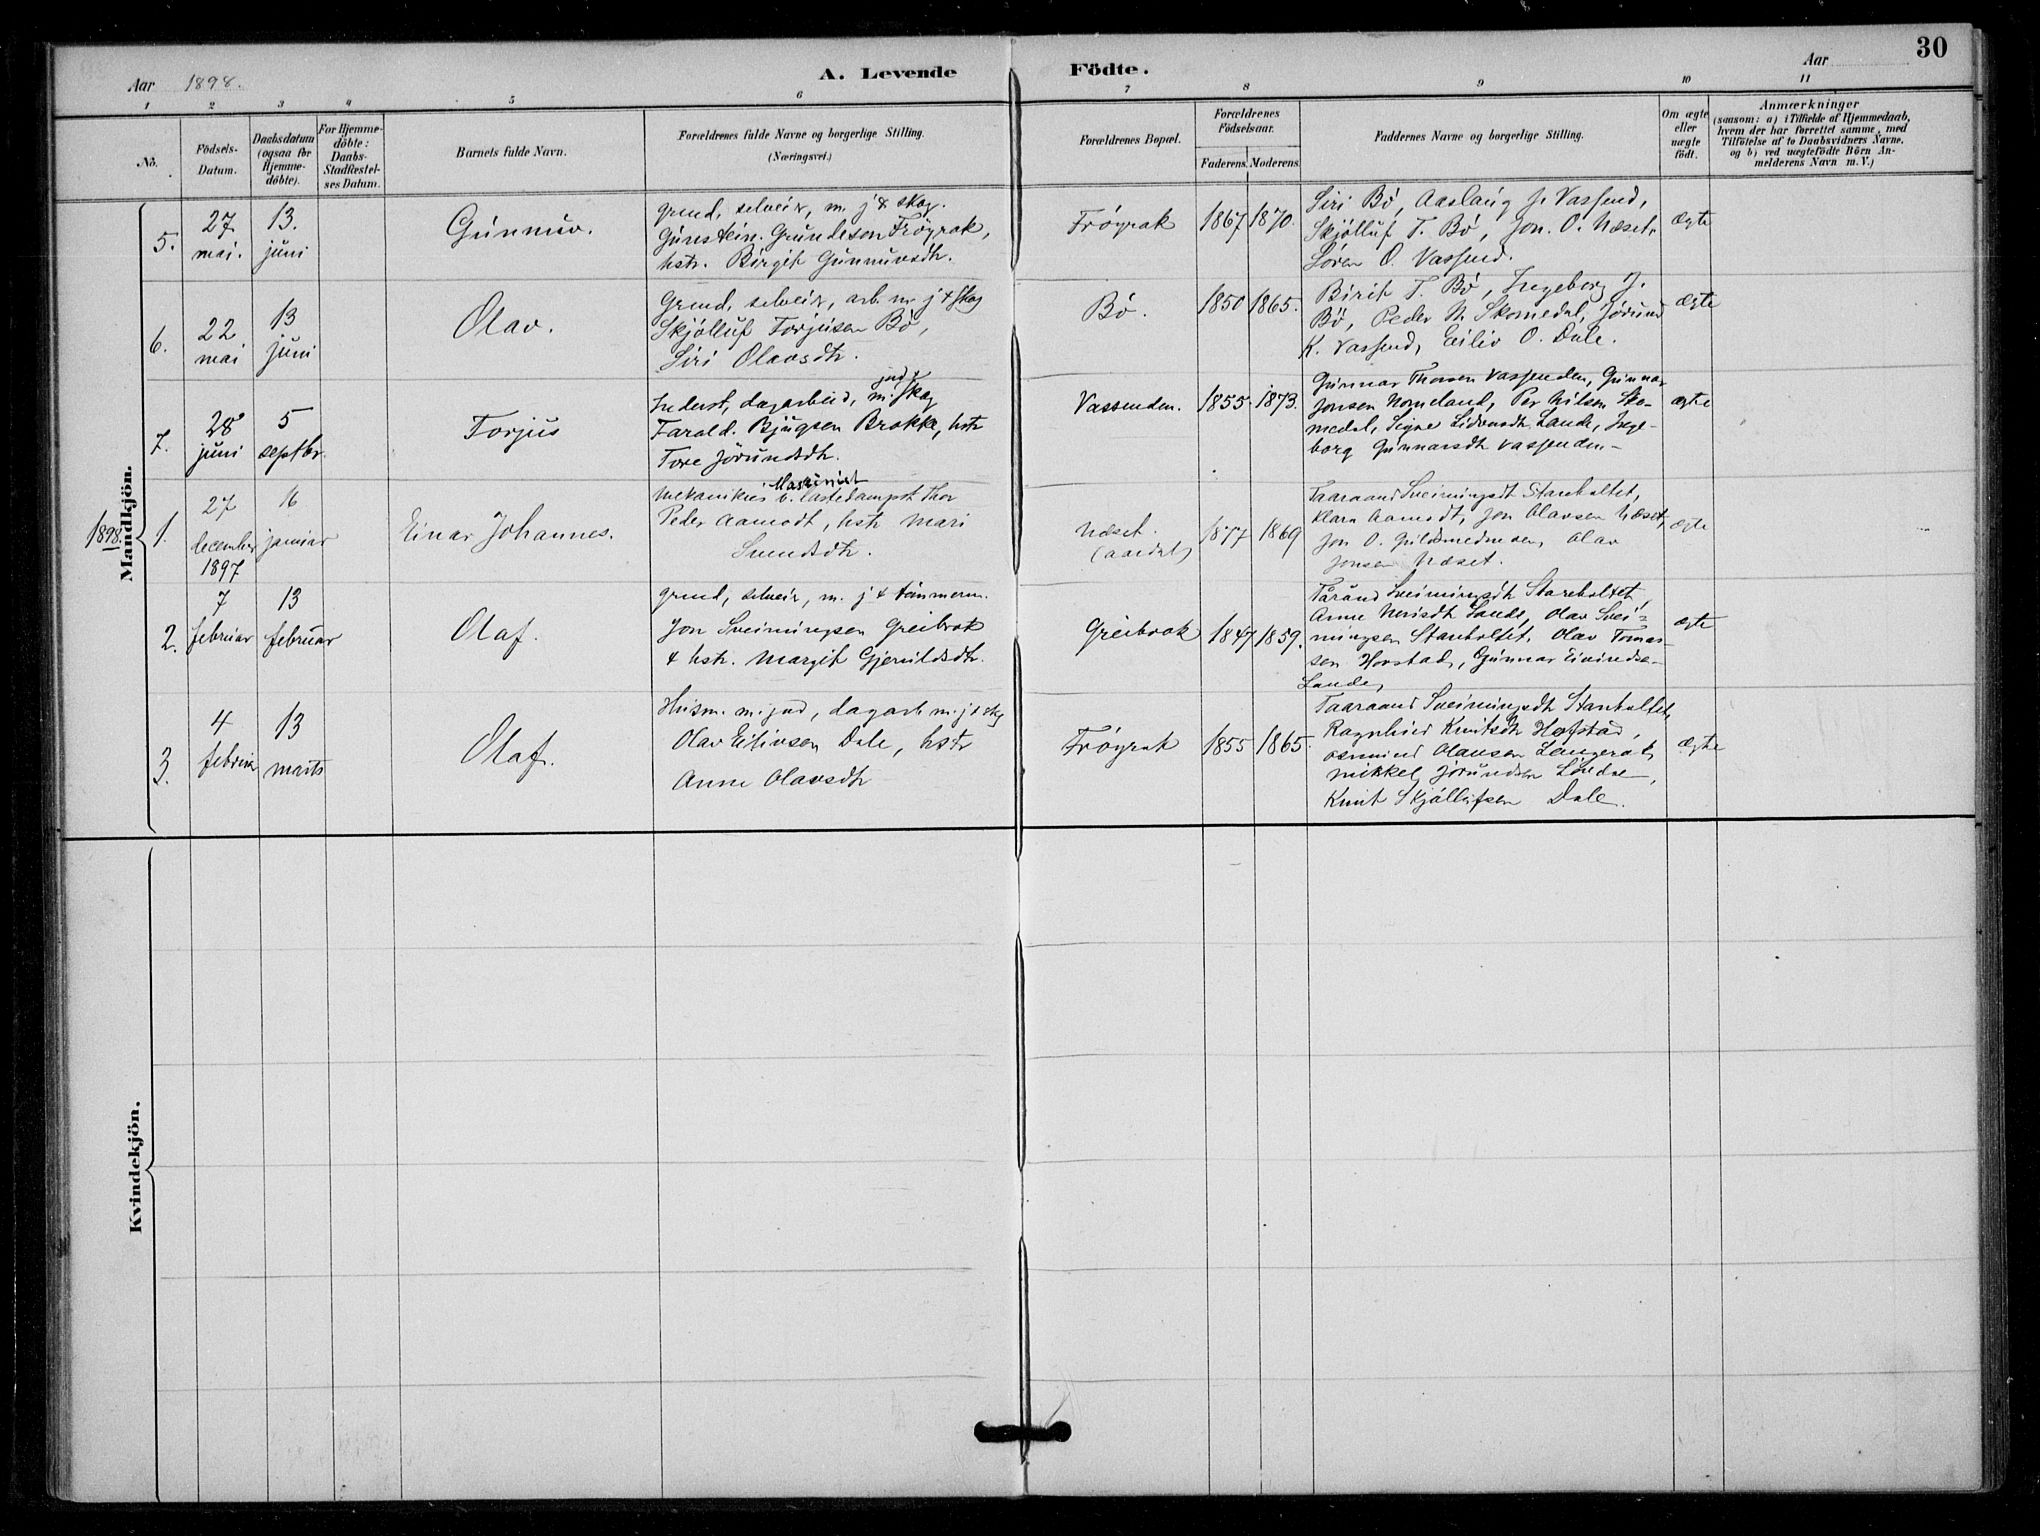 30
Aar 1898.
A. Levende Födte.
Aar
1 2 3 4 5 6 7 8 9 10 11
No.
Födsels-Datum.
Daabsdatum (ogsaa for Hjemme-döbte).
For Hjemme-döbte: Daabs-Stadfæstel-ses Datum.
Barnets fulde Navn.
Forældrenes fulde Navne og borgerlige Stilling.
(Næringsvei.)
Forældrenes Bopæl.
Forældrenes Födselsaar.
Faderens. Moderens.
Faddernes Navne og borgerlige Stilling.
Om ægte eller uægte födt.
Anmærkninger
(saasom: a) i Tilfælde af Hjemmedaab,
hvem der har forrettet samme, med
Tilföielse af to Daabsvidners Navne,
og b) ved uægtefödte Börn An-
melderens Navn m. V.)
Mandkjön.
5.
27. mai.
13. juni
Gunnuv.
grmd, selveier, m. j & skog.
Gunstein Grundeson Frøyrak,
hstr. Birgit Gunnuvsdtr.
Frøyrak
1867 1870.
Siri Bø, Aaslaug J. Vassend,
Skjølluf T. Bø, Jon. O. Næset,
Søren O. Vassend.
ægte
6.
22 mai
13 juni
Olav.
Grmd, selveier, arb. m. j & skog
Skjølluf Torjusen Bø,
Siri Olavsdtr.
Bø.
1850 1865.
Birit T. Bø, Ingeborg J.
Bø, Peder N. Skomedal, Jørund
K. Vassend, Eiliv O. Dale.
ægte
7.
28 juni
5 septbr.
Torjus
jord &
Inderst, dagarbeid, m. skog
Tarald Bjugsen Brokke, hstr
Tore Jørundsdtr.
Vassenden.
1855 1873.
Gunnar Thorsen Vassenden, Gunnar
Jonsen Nomeland, Per Nilsen Sko-
medal, Signe Lidvardsdtr Lande, Inge-
borg Gunnarsdtr Vassenden-
ægte
1898.
1.
27 december 1897
16 januar
Einar Johannes.
Maskinist
Mekanikus v. lastedampsk. Thor
Peder Aamodt, hstr Mari
Svendsdtr.
Næset.
(Aardal)
1877 1869
Taaraand Sveinungsdt Stavholtet,
Klara Aamodt, Jon Olavsen Næset,
Jon O. Olav
Jonsen Næset.
ægte
2.
7 februar
13 februar
Olaf.
grmd, selveier, m. j & tømmerm.
Jon Sveinungsen Greibrok
& hstr. Margit Gjerulds dtr.
Greibrok
1847 1859.
Tårånd Sveinungsdtr Stavholtet,
Anne Nerisdtr Lande, Olav Svei-
nungsen Stavholtet, Olav Tomas-
sen Hovstad, Gunnar Eivindsen
Lande,
ægte
3.
4 februar
13 marts
Olaf.
Husm. m. jord, dagarb. m. j & skg
Olav Eilivsen Dale, hstr
Anne Olavsdtr
Frøyrak
1855 1865.
Taaraand Sveinungsdtr Stavholtet,
Ragnhild Knutsdtr Hofstad,
Osmund Olavsen Langerak,
Mikkel Jørundsen
Knut Skjøllufsen Dale.
ægte
Kvindekjön.